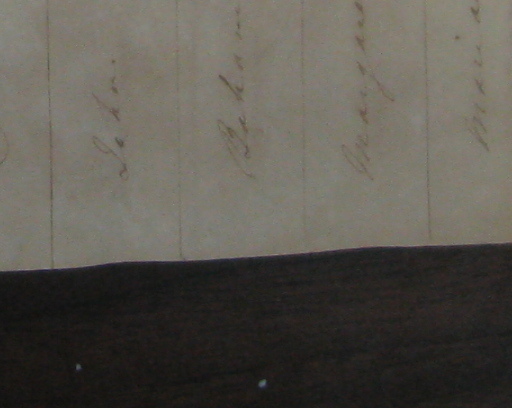 John.
Baham
Margare
Maria